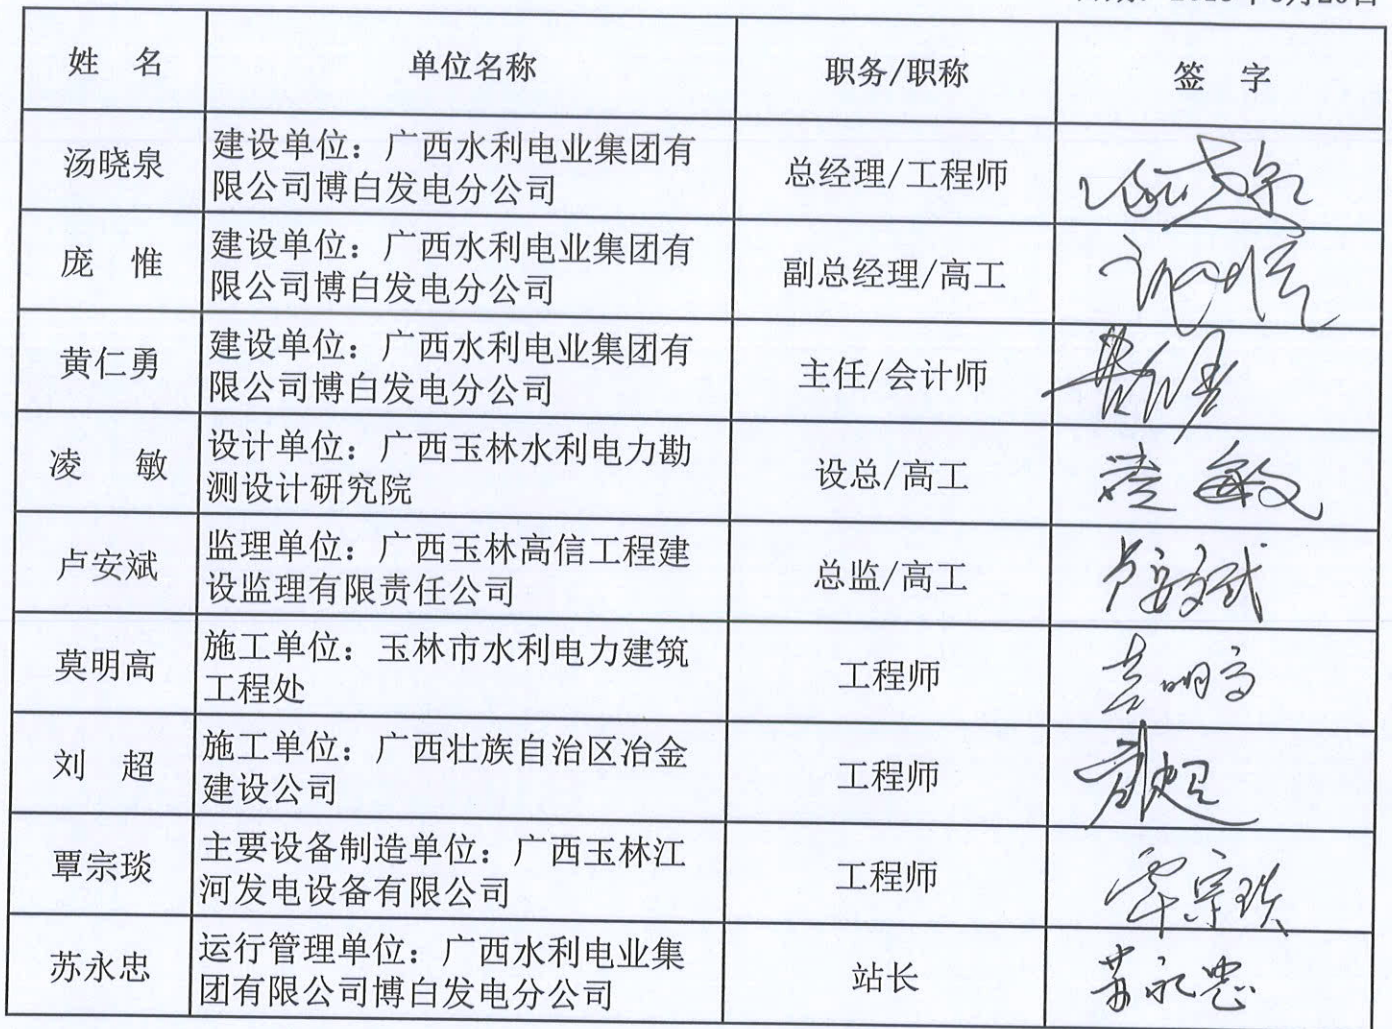 姓 名 单位名称 职务/职称 签 字
汤晓泉 建设单位：广西水利电业集团有限公司博白发电分公司 总经理/工程师
庞 惟 建设单位：广西水利电业集团有限公司博白发电分公司 副总经理/高工
黄仁勇 建设单位：广西水利电业集团有限公司博白发电分公司 主任/会计师
凌 敏 设计单位：广西玉林水利电力勘测设计研究院 设总/高工 凌敏
卢安斌 监理单位：广西玉林高信工程建设监理有限责任公司 总监/高工 卢安斌
莫明高 施工单位：玉林市水利电力建筑工程处 工程师 莫明高
刘 超 施工单位：广西壮族自治区冶金建设公司 工程师 刘超
覃宗琰 主要设备制造单位：广西玉林江河发电设备有限公司 工程师 覃宗琰
苏永忠 运行管理单位：广西水利电业集团有限公司博白发电分公司 站长 苏永忠